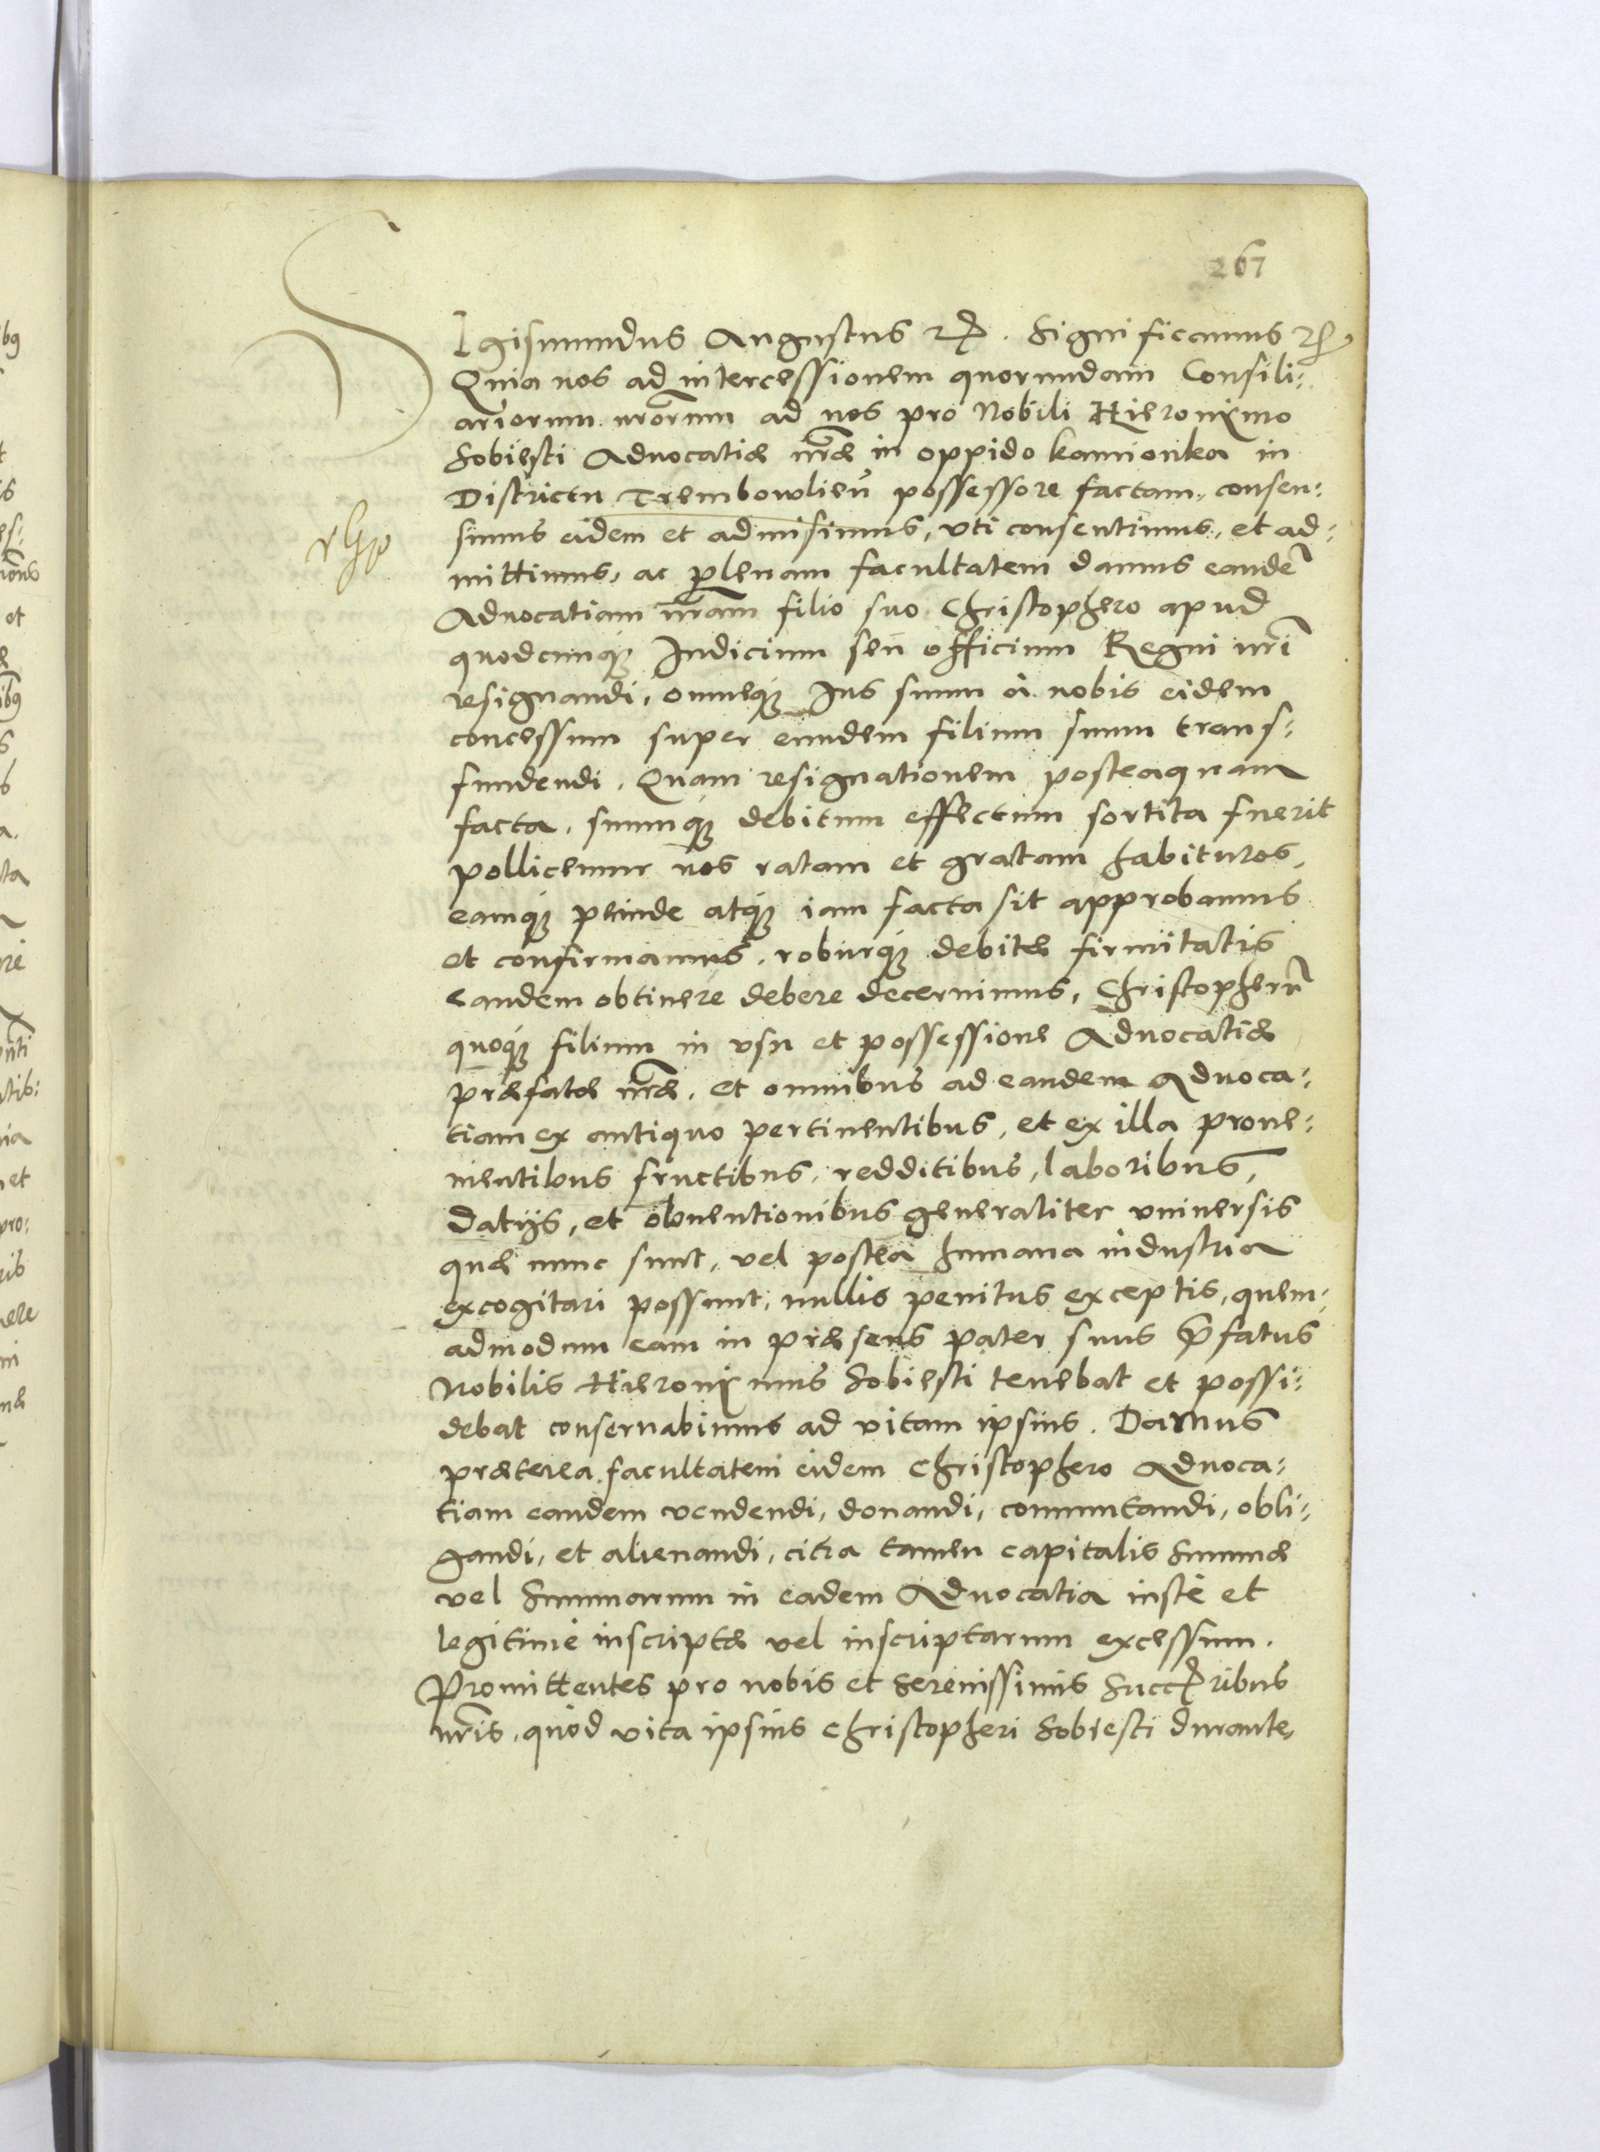 267
SIgismundus Augustus etc. Significamus etc.
Quia nos ad intercessionem quorundam Consili-
ariorum nrorum ad nos pro Nobili Hieronimo
Sobiesti Aduocatiæ nræ in oppido kamionka in
Districtu Trembowlień possessore factam, consen-
simus eidem et admisimus, vti consentimus, et ad-
mittimus, ac plenam facultatem damus eandē
Aduocatiam nram filio suo Christophero apud
quodcunq; Iudicium seu officium Regni nri
resignandi, omneq; Ius suum à nobis eidem
concessum super eundem filium suum trans-
fundendi. Quam resignationem posteaquam
facta, suumq; debitum effectum sortita fuerit
pollicemur nos ratam et gratam habituros,
eamq; perinde atq; iam facta sit approbamus
et confirmamus, roburq; debitæ firmitatis
eandem obtinere debere decernimus, Christopherū
quoq; filium in vsu et possessione Aduocatiæ
præfatæ nræ, et omnibus ad eandem Aduoca-
tiam ex antiquo pertinentibus, et ex illa proue-
nientibus fructibus, redditibus, laboribus,
datijs, et obuentionibus generaliter vniuersis
quæ nunc sunt, vel postea humana industria
excogitari possunt, nullis penitus exceptis, quem-
admodum eam in præsens pater suus pfatus
Nobilis Hieronimus Sobiesti tenebat et possi-
debat conseruabimus ad vitam ipsius. Damus
præterea facultatem eidem Christophero Aduoca-
tiam eandem vendendi, donandi, commutandi, obli-
gandi, et alienandi, citra tamen capitalis Summæ
vel Summarum in eadem Aduocatia iustè et
legitimè inscriptæ vel inscriptarum excessum.
Promittentes pro nobis et Serenissimis Succribus
nris, quod vita ipsius Christopheri Sobiesti durante